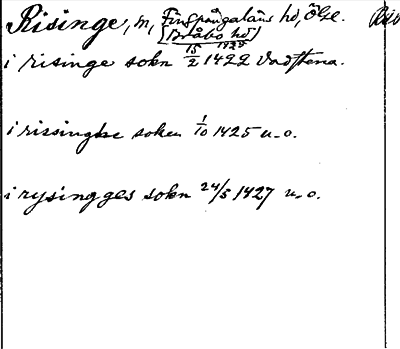 Risinge, sn, Finspångaläns hd, Ögl.
(Bråbo hd) 1927
i risinge sokn 15/2 1422 Vadstena.
i rissinghe soken 1/10 1425 u.o.
i rysingges sokn 24/5 1427 u.o.